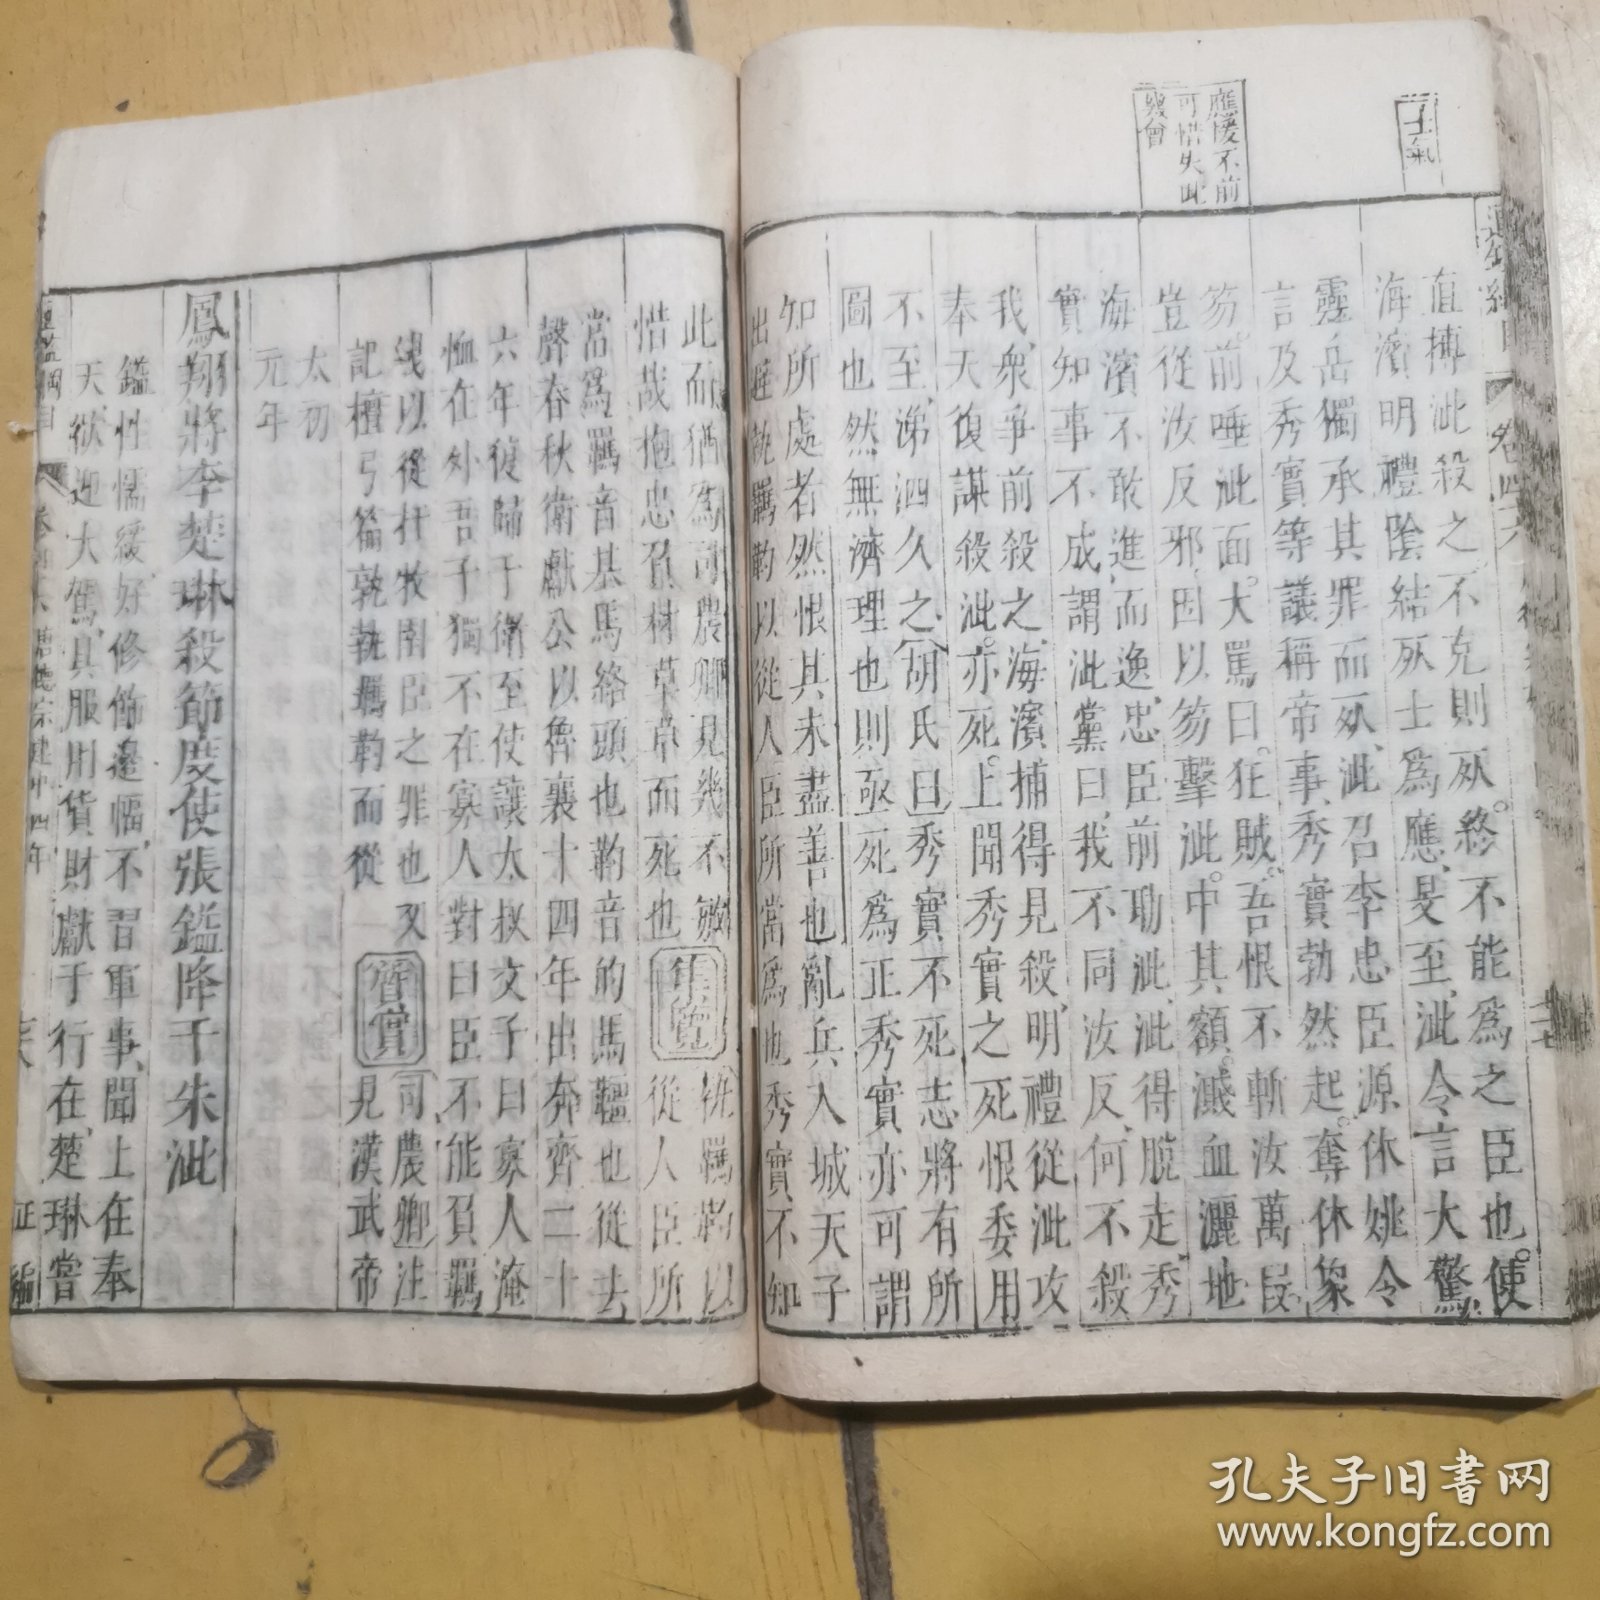 應援不前
可惜失此
幾會
直搏泚殺之不克則死終不能爲之臣也使
海濱明禮陰結死士爲應旻至泚令言大驚
靈岳獨承其罪而死泚召李忠臣源休姚令
言及秀實等議稱帝事秀實勃然起奪休象
笏前唾泚面大罵曰狂賊吾恨不斬汝萬段
豈從汝反邪因以笏擊泚中其額濺血灑地
海濱不敢進而逸忠臣前助泚泚得脫走秀
實知事不成謂泚黨曰我不同汝反何不殺
我衆爭前殺之海濱捕得見殺明禮從泚攻
奉天復謀殺泚亦死上聞秀實之死恨委用
不至涕泗久之胡氏曰秀實不死志將有所
圖也然無濟理也則亟死爲正秀實亦可謂
知所處者然恨其未盡善也亂兵入城天子
出避執羈靮以從人臣所當爲也秀實不知
此而猶爲司農卿見幾不敏集覽執羈靮以
惜哉抱忠負材草草而死也從人臣所
當爲羈音基馬絡頭也靮音的馬韁也從去
聲春秋衛獻公以魯襄十四年出奔齊二十
六年復歸于衛至使讓太叔文子曰寡人淹
恤在外吾子獨不在寡人對曰臣不能負羈
絏以從扞牧圉臣之罪也又司農卿注
記檀弓篇孰執羈靮而從質實見漢武帝
太初
元年
鳳翔將李楚琳殺節度使張鎰降于朱泚
鎰性懦緩好修飾邊幅不習軍事聞上在奉
天欲迎大駕具服用貨財獻于行在楚琳嘗
正編
孔夫子旧书网
www.kongfz.com